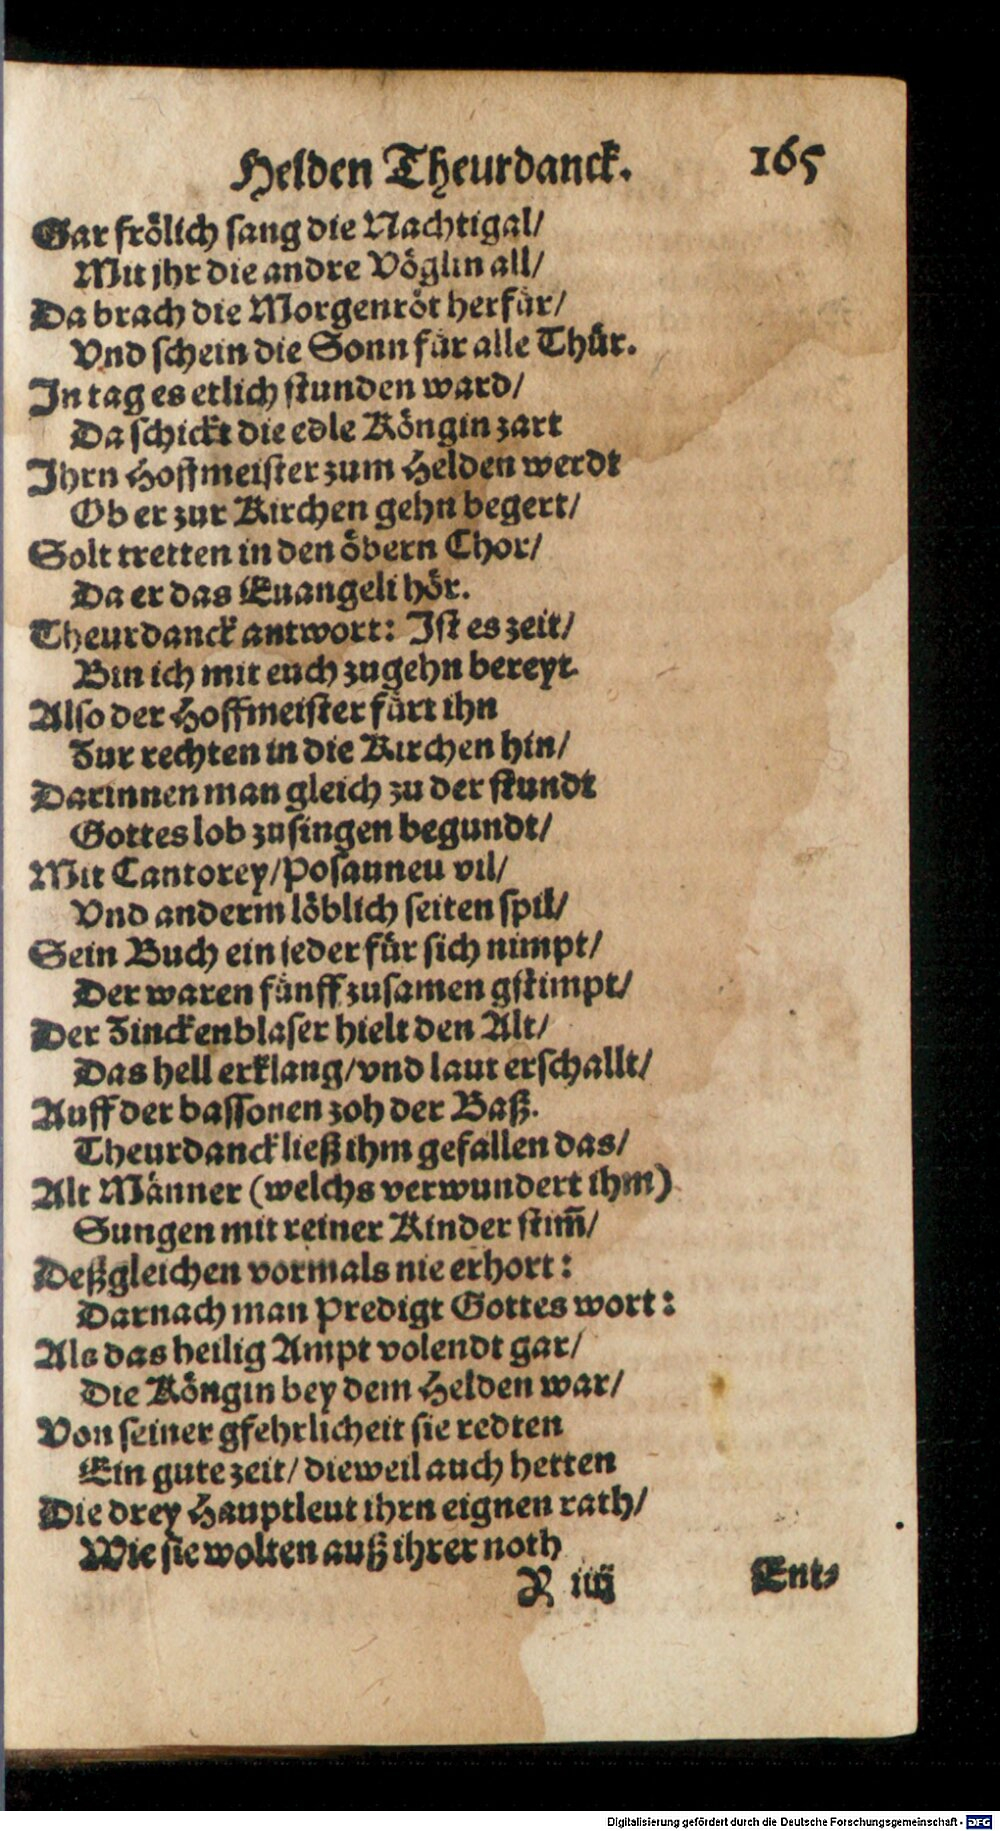 Helden Theurdanck. 165
Gar frölich sang die Nachtigal/
Mit jhr die andre Vöglin all/
Da brach die Morgenröt herfür/
Vnd schein die Sonn für alle Thür.
In tag es etlich stunden ward/
Da schickt die edle Köngin zart
Ihrn Hoffmeister zum Helden werdt
Ob er zur Kirchen gehn begert/
Solt tretten in den öbern Chor/
Da er das Euangeli hör.
Theurdanck antwort: Ist es zeit/
Bin ich mit euch zugehn bereyt.
Also der Hoffmeister fürt ihn
Zur rechten in die Kirchen hin/
Darinnen man gleich zu der stundt
Gottes lob zusingen begundt/
Mit Cantorey/Posauneu vil/
Vnd anderm löblich seiten spil/
Sein Buch ein jeder für sich nimpt/
Der waren fünff zusamen gstimpt/
Der Zinckenblaser hielt den Alt/
Das hell erklang/vnd laut erschallt/
Auff der bassonen zoh der Baß.
Theurdanck ließ ihm gefallen das/
Alt Männer (welchs verwundert ihm)
Sungen mit reiner Kinder stim̃/
Deßgleichen vormals nie erhort:
Darnach man Predigt Gottes wort:
Als das heilig Ampt volendt gar/
Die Köngin bey dem Helden war/
Von seiner gfehrlicheit sie redten
Ein gute zeit/ dieweil auch hetten
Die drey Hauptleut ihrn eignen rath/
Wie sie wolten auß ihrer noth
R iiij Ent⸗
Digitalisierung gefördert durch die Deutsche Forschungsgemeinschaft - DFG